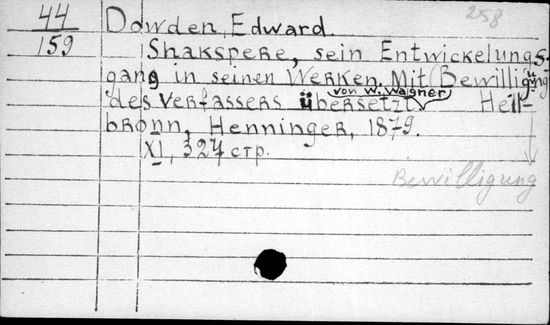 44
159
258
Dowden, Edward.
Shakspere, sein Entwickelungs-
gang in seinen Werken. Mit Bewilligung
des Verfassers übersetzt von W. Wagner Heil-
bronn, Henninger, 1879.
XI, 327 стр.
Bewilligung